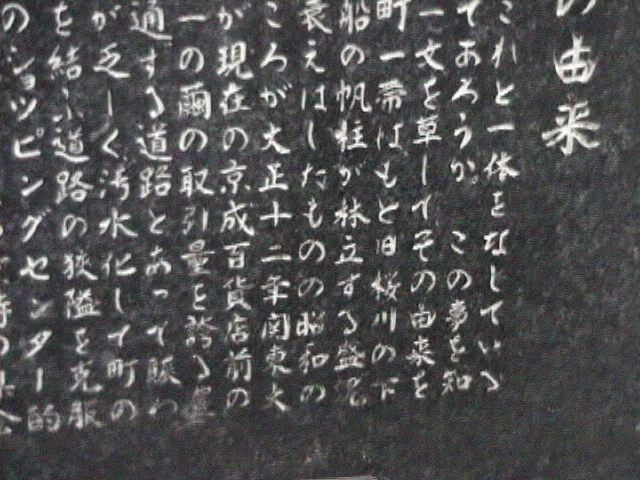 の由来
これと一体をなしている
であろうか。この事を知
一文を草してその由来を
町一帯はもと旧桜川の下
船の帆柱が林立する盛況
衰えはしたものの昭和の
ころが大正十二年関東大
が現在の京成百貨店前の
一の繭の取引量を誇る
通する道路とあって賑わ
が乏しく汚水化して町の
を結ぶ道路の狭隘を克服
のショッピングセンター的